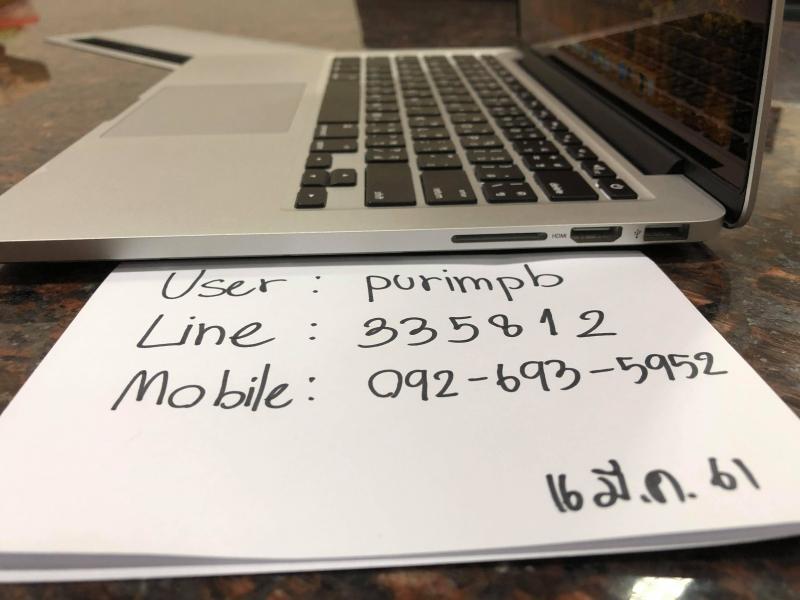 HDMI
User : purimpb
Line : 335812
Mobile: 092-693-5952
16 มี.ค. 61